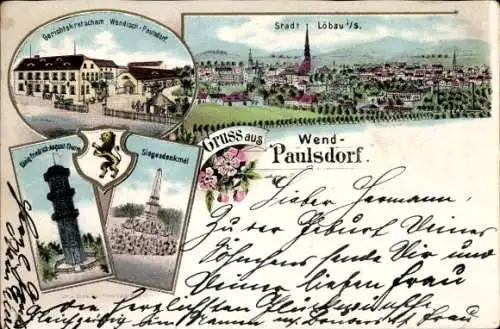 Gerichtskretscham Wendisch-Paulsdorf.
Stadt Löbau i/S.
Gruss aus
Wend-
Paulsdorf.
König Friedrich-August-Thurm
Siegesdenkmal
Lieber Hermann,
Zu der Geburt Deines
Söhnchens sende Dir und
Deiner lieben Frau
die herzlichsten Glückwünsche
Gleichzeitig im Namen
Frau